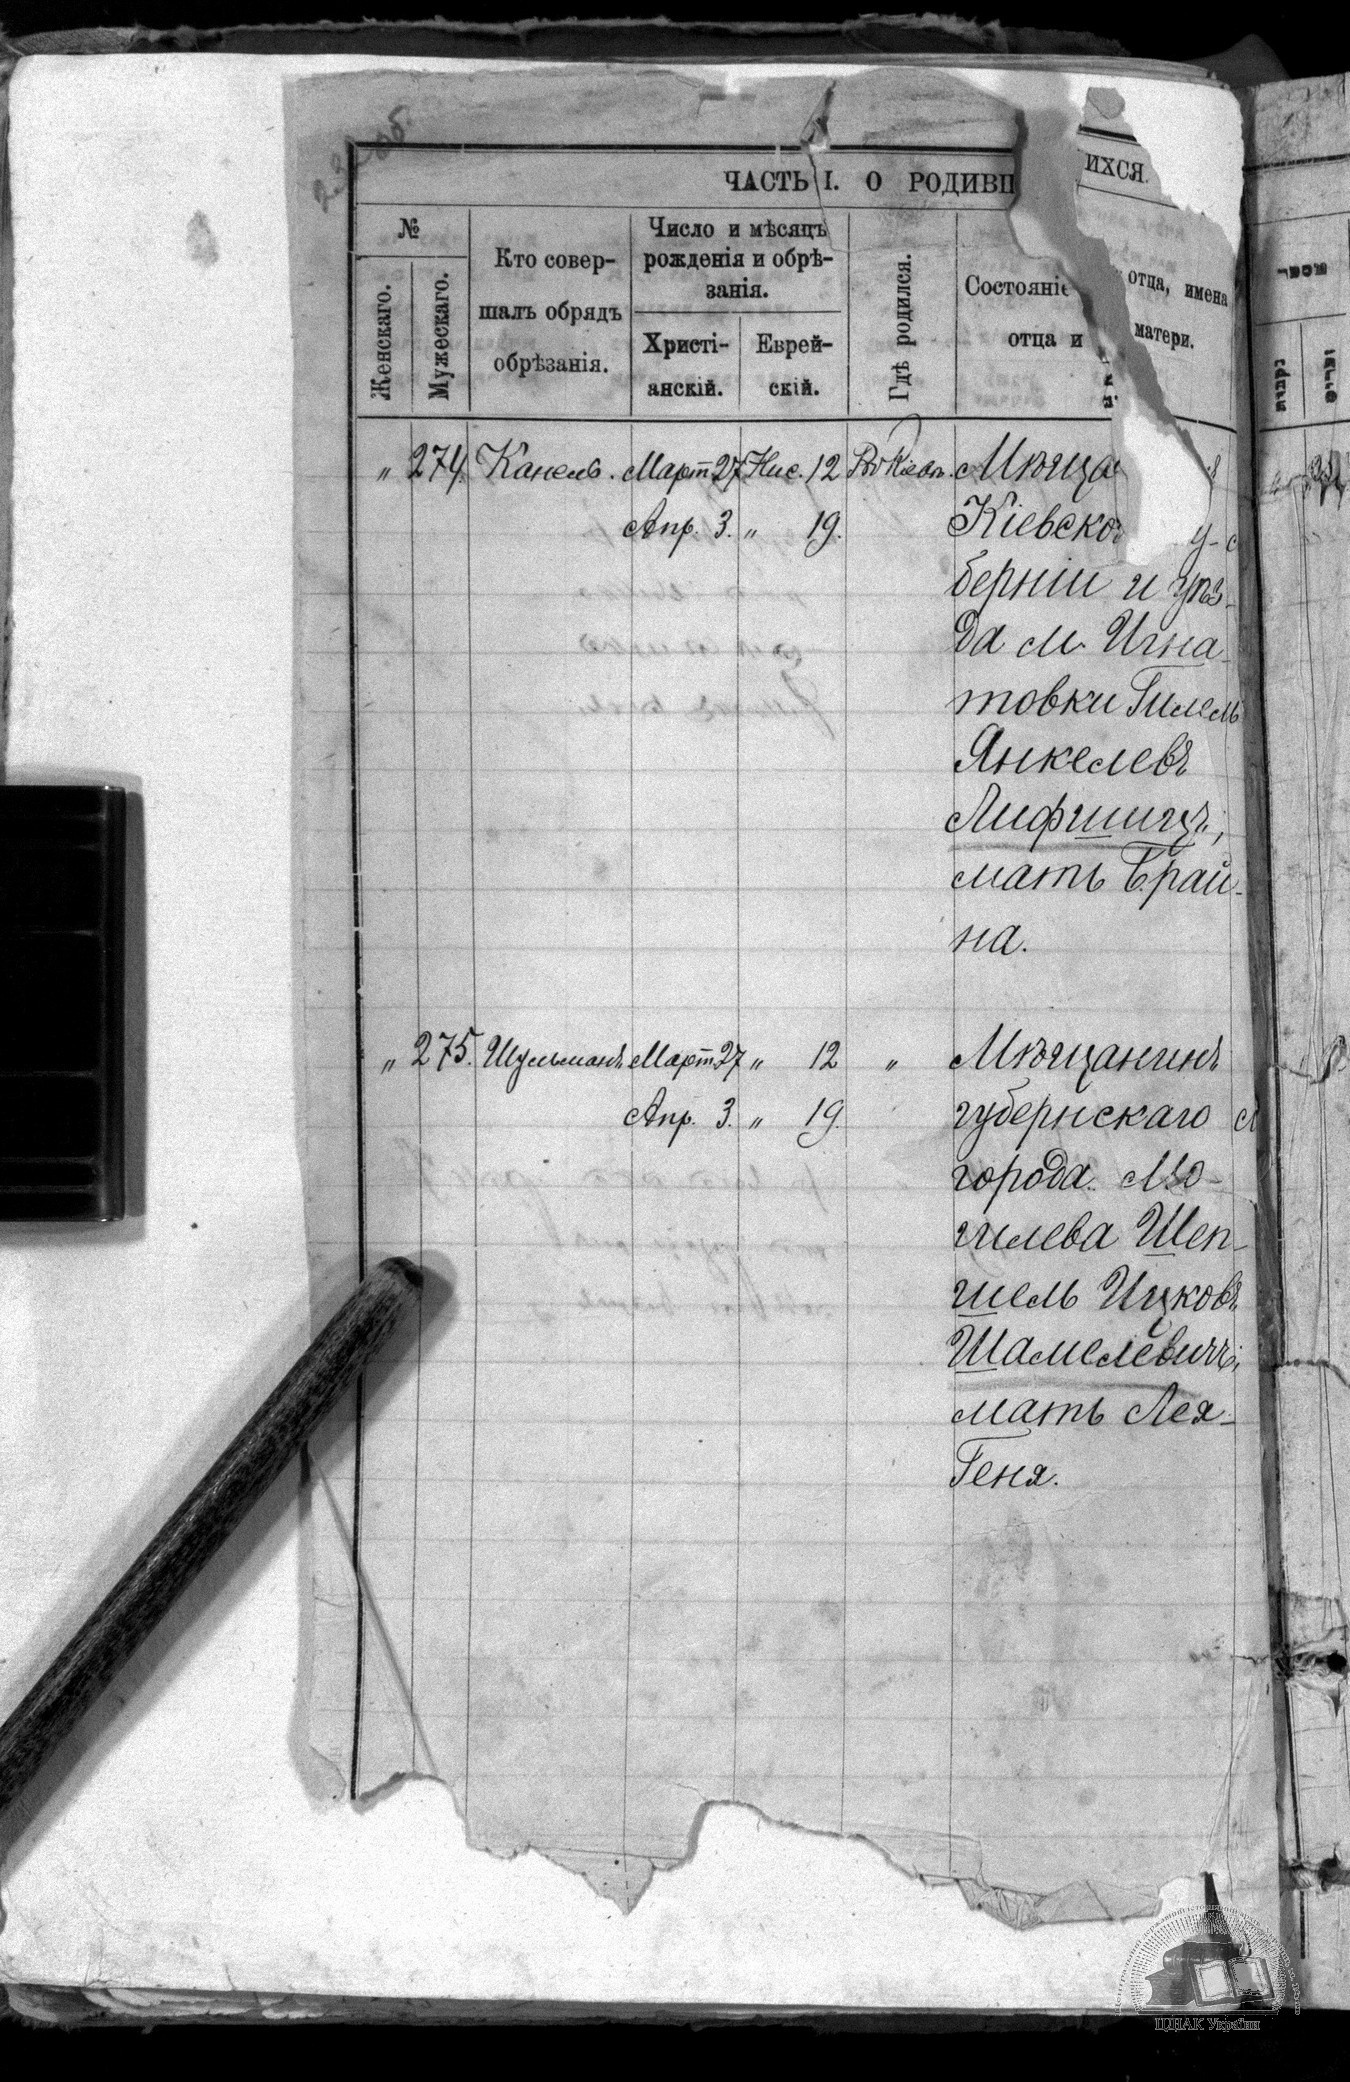 ЧАСТЬ I. О РОДИВШИХСЯ.
№
Женскаго.
Мужескаго.
Кто совер-
шалъ обрядъ
обрѣзанія.
Число и мѣсяцъ
рожденія и обрѣ-
занія.
Христі-
анскій.
Еврей-
скій.
Гдѣ родился.
Состояніе отца, имена
отца и матери.
„ 274. Канель. Март. 27 Нис. 12 Въ Кіевѣ.
Апр. 3. „ 19.
Кіевской гу-
берніи и уѣз-
да м. Игна-
товки Гилель
Янкелевъ
Лифшицъ,
мать Брай-
на.
„ 275. Шульманъ Март. 27 „ 12 „ Мѣщанинъ
Апр. 3. „ 19. губернскаго
города Мо-
гилева Шеп-
шель Ицковъ
Шамелевичъ,
мать Лея-
Геня.
ЦДІАК України